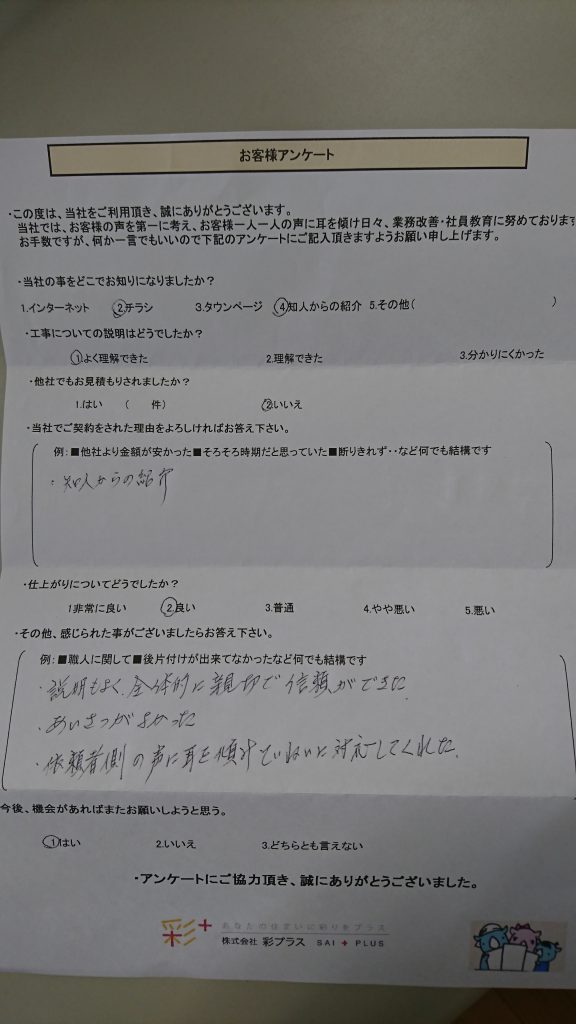 お客様アンケート
・この度は、当社をご利用頂き、誠にありがとうございます。
当社では、お客様の声を第一に考え、お客様一人一人の声に耳を傾け日々、業務改善・社員教育に努めております
お手数ですが、何か一言でもいいので下記のアンケートにご記入頂きますようお願い申し上げます。
・当社の事をどこでお知りになりましたか？
1.インターネット 2.チラシ 3.タウンページ 4.知人からの紹介 5.その他( )
・工事についての説明はどうでしたか？
1.よく理解できた 2.理解できた 3.分かりにくかった
・他社でもお見積もりされましたか？
1.はい ( 件) 2.いいえ
・当社でご契約をされた理由をよろしければお答え下さい。
例：■他社より金額が安かった■そろそろ時期だと思っていた■断りきれず‥など何でも結構です
・知人からの紹介
・仕上がりについてどうでしたか？
1非常に良い 2.良い 3.普通 4.やや悪い 5.悪い
・その他、感じられた事がございましたらお答え下さい。
例：■職人に関して■後片付けが出来てなかったなど何でも結構です
・説明もよく、全体的に親切で信頼ができた
・あいさつがよかった
・依頼者側の声に耳を傾けていねいに対応してくれた。
今後、機会があればまたお願いしようと思う。
1.はい 2.いいえ 3.どちらとも言えない
・アンケートにご協力頂き、誠にありがとうございました。
彩+ あなたの住まいに彩りをプラス
株式会社 彩プラス SAI + PLUS